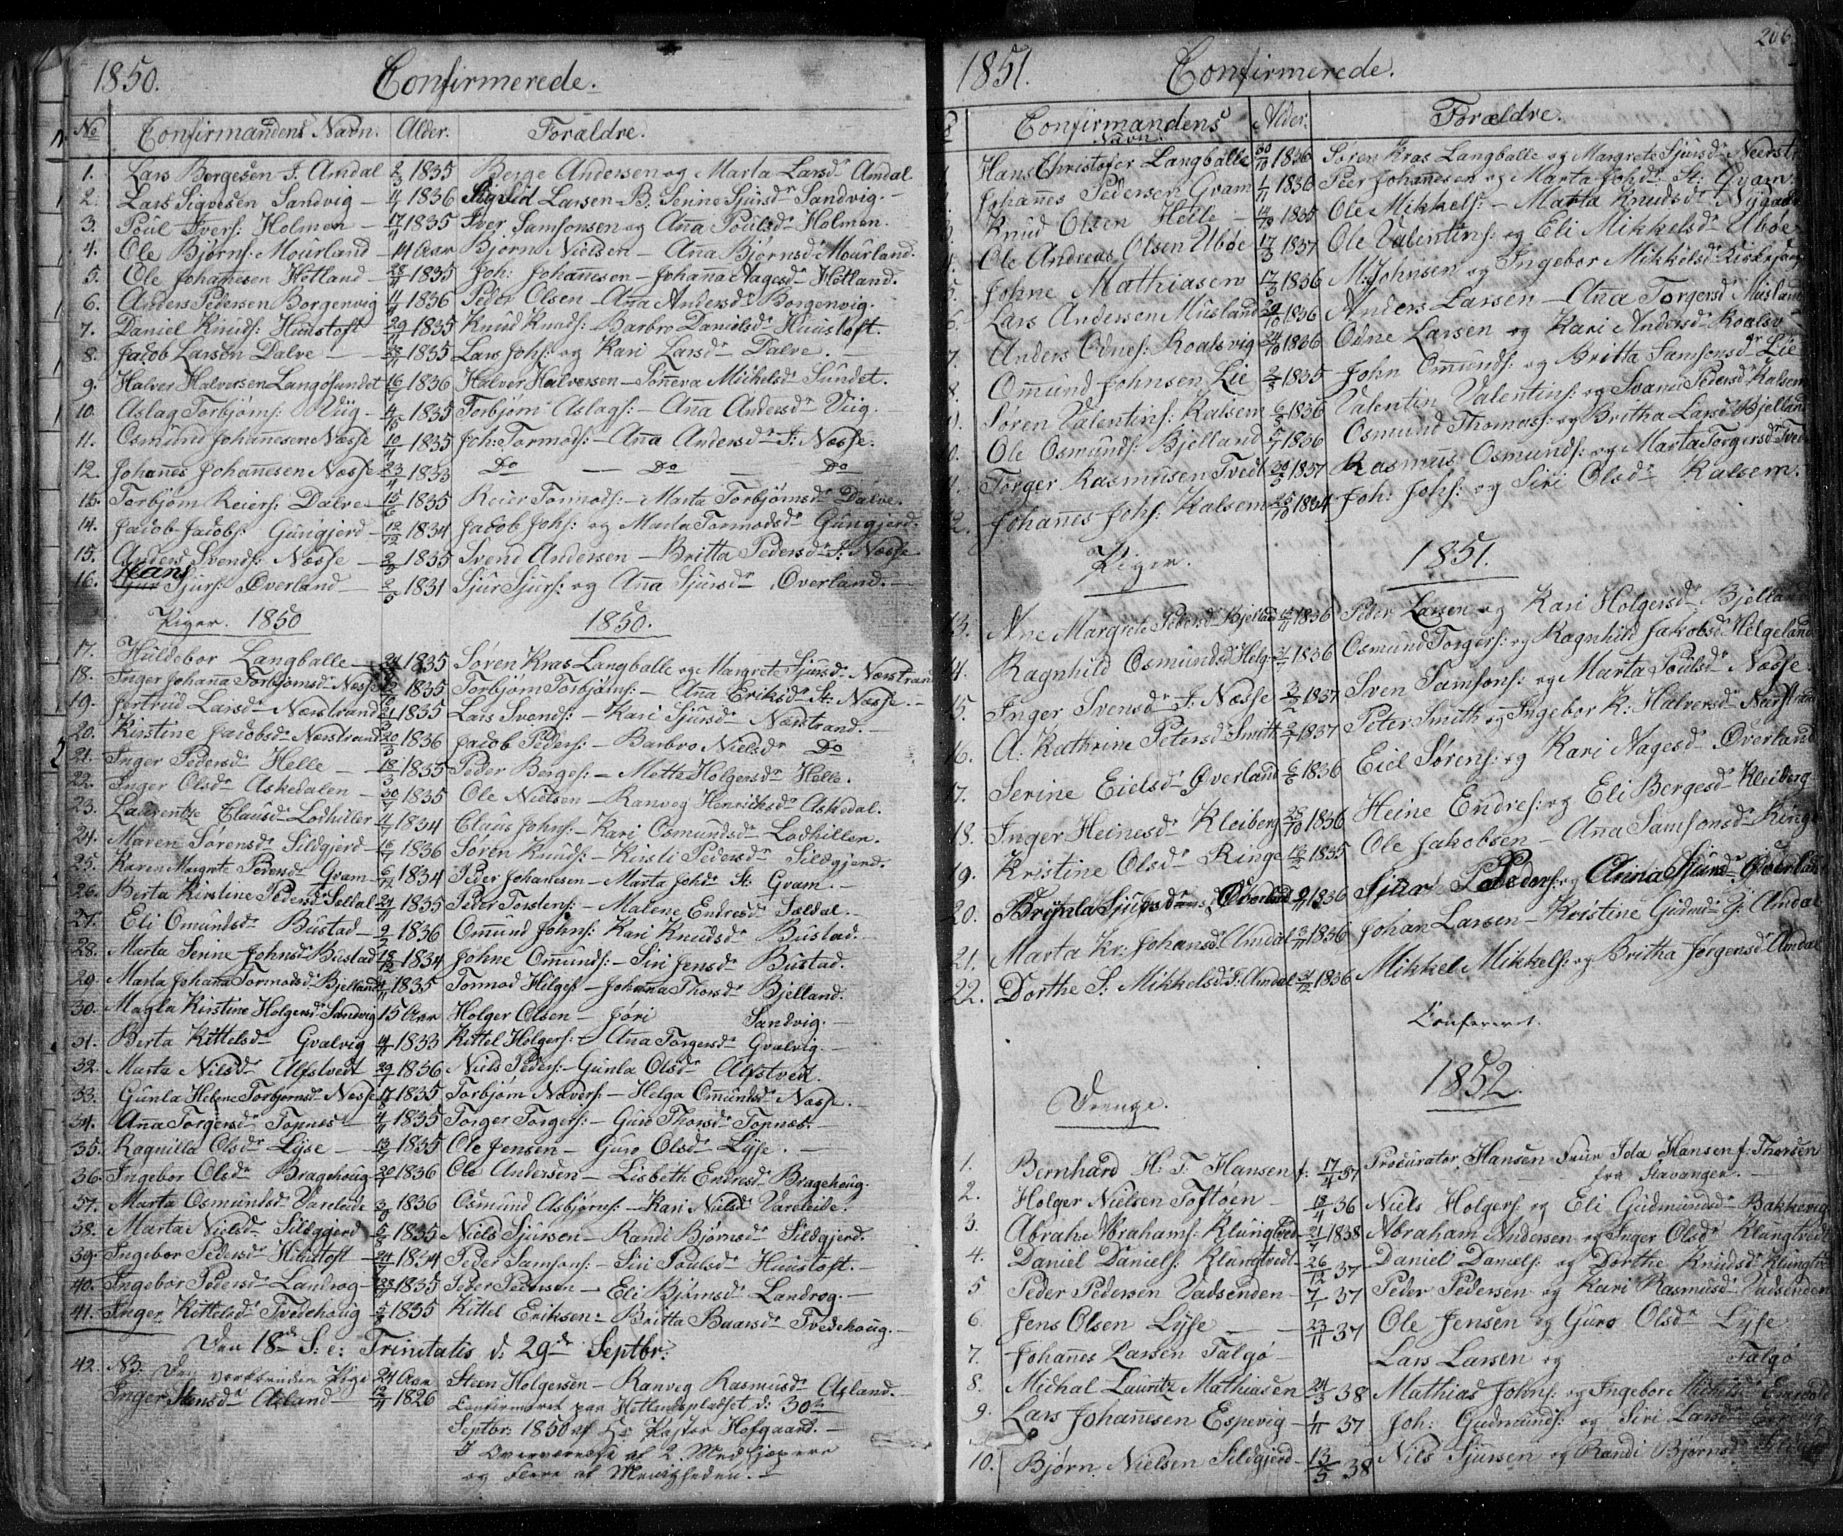 1850. Confirmerede.
No Confirmandens Navn. Alder. Forældre.
1. Lars Bergesen I. Amdal 2/3 1835 Berge Andersen og Marta Larsdr Amdal
2. Lars Sigvesen Sandvig 1836 Larsen B. Serine Sjursdr Sandvig.
3. Poul Ivers: Holmen 17/ 1835 Iver Samsonsen og Anna Poulsdr Holmen.
4. Ole Bjørns: Mourland 14 Aar Bjørn Nielsen – Anna Bjørnsdr Mourland.
5. Ole Johannesen Hetland 1835 Joh: Johannesen – Johanna Aagesdr Hetland.
6. Anders Pedersen Borgenvig 1836 Peder Olsen – Anna Andersdr Borgenvig.
7. Daniel Knuds: Huustoft 29/ 1835 Knud Knuds: Barbro Danielsdr Huustoft.
8. Jacob Larsen Dalve 1835 Lars Johs: og Kari Larsdr Dalve.
9. Halver Halversen Langøsundet 16/ 1836 Halver Halversen – Sonneva Mickelsdr Sundet.
10. Aslag Torbjørns: Viig 1835 Torbjørn Aslags: – Anna Andersdr Viig.
11. Osmund Johannesen Næsse 10/ 1835 Joh: Tormods: – Anna Andersdr I: Næsse.
12. Johannes Johannesen Næsse 23/ 1833 Do – Do – Do
13. Torbjørn Reiers: Dalve 15/ 1835 Reier Tormods: – Marta Torbjørnsdr Dalve.
14. Jacob Jacobs: Gungjerd 12/12 1834 Jacob Johs: og Marta Tormodsdr Gungjerd.
15. Anders Svends: Næsse 1835 Svend Andersen – Britta Pedersdr I: Næsse
16. Hans Sjurs: Øverland 2/5 1831 Sjur Sjurs: og Anna Sjursdr Øverland.
Piger. 1850 1850.
17. Huldebor Langballe 1835 Søren Kras Langballe og Margrete Sjursdr Nærstrand
18. Inger Johanna Torbjørnsdr Næsse 1835 Torbjørn Torbjørns: – Anna Eriksdr St. Næsse.
19. Jertrud Larsdr Nærstrand 1835 Lars Svends: – Kari Sjursdr Nærstrand.
20. Kirstine Jacobsdr Nærstrand 1836 Jacob Peders: – Barbro Nielsdr Do
21. Inger Pedersdr Helle 18/3 1835 Peder Berges: – Mette Holgersdr Helle.
22. Inger Olsdr Askedalen 30/ 1835 Ole Nielsen – Ranveg Henriksdr Askedal.
23. Laurentze Clausdr Lodhiller 1834 Claus Johns: – Kari Osmundsdr Lodhiller.
24. Maren Sørensdr Sildgjerd 1836 Søren Knuds: – Kirsti Pedersdr Sildgjerd.
25. Karen Margrete Pedersdr Gvam 6/12 1834 Peder Johanesen – Marta Johsdr St. Gvam.
26. Berta Kirstine Pedersdr Seldal 1835 Peder Torstens: – Malene Endresdr Sældal.
27. Eli Omundsdr Bustad 1836 Ommund Johns: Kari Knudsdr Bustad.
28. Marta Serine Johnsdr Bustad 1834 Johne Ommunds: – Siri Jensdr Bustad.
29. Marta Johana Tormodsdr Bjelland 1835 Tormod Helges – Johanna Thorsdr Bjelland.
30. Magla Kirstine Holgersdr Sandvig 15 Aar Holger Olsen – Jøri Sandvig.
31. Berta Kittelsdr Gvalvig 1833 Kittel Holgers: – Anna Torgersdr Gvalvig.
32. Marta Nilsdr Alfstvedt 29/ 1836 Niels Peders: – Gunla Olsdr Alfstved.
33. Gunla Helene Torbjørnsdr Næsse 17/ 1835 Torbjørn Nolvers: – Helga Ommundsdr Næsse.
34. Anna Torgersdr Topnes 1835 Torger Torgers: – Guro Thorsdr Topnes.
35. Ragnilla Olsdr Lyse 1835 Ole Jensen – Guro Olsdr Lyse.
36. Ingebor Olsdr Bragehoug 1836 Ole Andersen – Lisbeth Endresdr Bragehoug.
37. Marta Osmundsdr Vareleide 1836 Osmund Asbjørns: – Kari Nielsdr Vareleide.
38. Marta Nielsdr Sildgjerd 1835 Niels Sjursen – Randi Bjørnsdr Sildgjerd.
39. Ingebor Pedersdr Huustoft 24/ 1834 Peder Samsons: – Siri Poulsdr Huustoft.
40. Ingebor Pedersdr Landrog 1835 Peder Pedersen – Eli Bjørnsdr Landrog.
41. Inger Kittelsdr Tvedehoug 1835 Kittel Eriksen – Britta Baarsdr Tvedehoug.
Den 18de S: e: Trinitatis d: 29de Septbr:
42. NB. Den Pige 24 Aar Steen Holgersen – Ranveg Rasmusdr Aasland.
Inger Stensdr Aasland 1826 Confirmeret paa d: 30te
Septbr: 1850 af Hr Pastor Hofgaard.
I Overværelse af 2 Medhjelpere
og flere af Menigheden.
206
1851. Confirmerede.
Confirmandens Navn Alder. Forældre.
Hans Christofer Langballe 30/ 1836 Søren Kras Langballe og Margrete Sjursdr
Johannes Pedersen Gvam 1/11 1836 Peer Johannesen og Marta Johsdr St. Gvam.
Knud Olsen Helle 1835 Ole Mikkels: – Marta Knudsdr
Ole Andreas Olsen Ubøe 17/3 1837 Ole Valentins: og Eli Mikkelsdr Ubøe
Johne Mathiasen 17/ 1836 M. Johnsen og Ingebor Mikkelsdr
Lars Andersen Musland 29/10 1836 Anders Larsen – Anna Torgersdr Musland
7. Anders Odnes: Roalsvig 1836 Odne Larsen og Kari Andersdr
8. Ommund Johnsen Lie 1835 John Ommunds: og Britta Samsonsdr Lie
Søren Valentins: Kalsem 1836 Valentin Valentins: og Pedersdr Kalsem
Ole Osmunds: Bjelland 1836 Osmund Thomas: og Britha Larsdr Bjelland
Torger Rasmusen Tvedt 1837 Rasmus Osmunds: og Marta Torgersdr
2. Johannes Johs: Kalsem 25/10 1834 Joh: Johs: og Siri Olsdr Kalsem.
Piger. 1851.
13. Ane Margrete Pedersdr Bjelland 1836 Peder Larsen og Kari Holgersdr Bjelland
14. Ragnhild Osmundsdr Helg 1836 Osmund Torgers: og Ragnhild Jakobsdr Helgeland
15. Inger Svensdr I. Næsse 1837 Sven Samsons: og Marta Poulsdr Næsse
16. A. Kathrine Petersdr Smith 1837 Peter Smith og Ingebor K: Halversdr Nærstrand
17. Serine Eielsdr Øverland 1836 Eiel Sørens: og Kari Aagesdr Øverland
18. Inger Heinesdr Kleiberg 1836 Heine Endres: og Eli Bergesdr Kleiberg
19. Kristine Olsdr Ringe 1835 Ole Jakobsen – Anna Samsonsdr
20. Øverland 1836 Sjur Peders: og Anna Sjursdr Øverland
21. Marta Kr: Johansdr Amdal 1836 Johan Larsen – Kirstine Gudmdr Y: Amdal
22. Dorthe S: Mikkelsdr I. Amdal 1836 Mikkel Mikkels: og Britha Jørgensdr Amdal
Confereret.
1852.
Drenge.
1. Bernhard H. T. Hansen f: 17/4 37 Procurator Hansen Frue Ida Hansen f: Thorsen
fra Stavanger.
2. Holger Nielsen Toftøen 36 Niels Holgers: og Eli Gudmundsdr Bakkevig
3. Abrah: Abrahams: Klungtvedt 21/ 1838 Abraham Andersen og Inger Olsdr Klungtvedt
4. Daniel Daniels: Klungtvedt 26/12 37 Daniel Daniels: og Dorthe Knudsdr
5 Peder Pedersen Vadsenden 7/1 37 Peder Pedersen og Kari Rasmusdr Vadsenden
6. Jens Olsen Lyse 23/11 37 Ole Jensen og Guro Olsdr Lyse
7. Johannes Larsen Talgø Lars Larsen og Talgø
8. Michal Lauritz Mathiasen 24/3 38 Mathias Johns: og Ingebor
9. Lars Johannesen Espevig 37 Joh: Gudmunds: og Siri Larsdr Espevig
10. Bjørn Nielsen Sildgjerd 13/5 38 Nils Sjursen og Randi Bjørnsdr